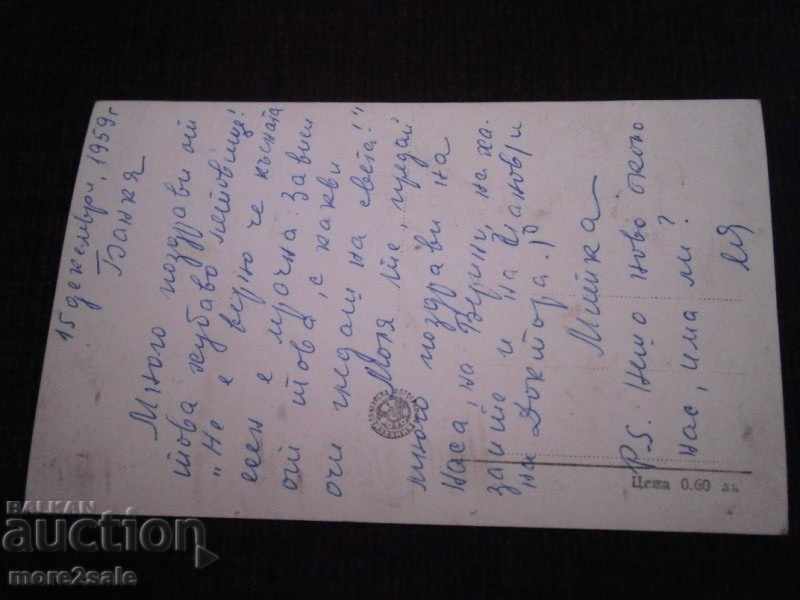 15 декември, 1959 г
Банкя
Много поздрави от
това хубаво летовище!
"Не е верно че късната
есен е мрачна. Зависи
от това, с какви
очи гледаш на света!"
Моля те, предай
много поздрави на
Наса, на Верини, на ха-
заите и на
на Доктора.
Минка
PS. Нещо ново около
нас, има ли?
Цена 0.60 лв.
BALKAN
auction
more2sale